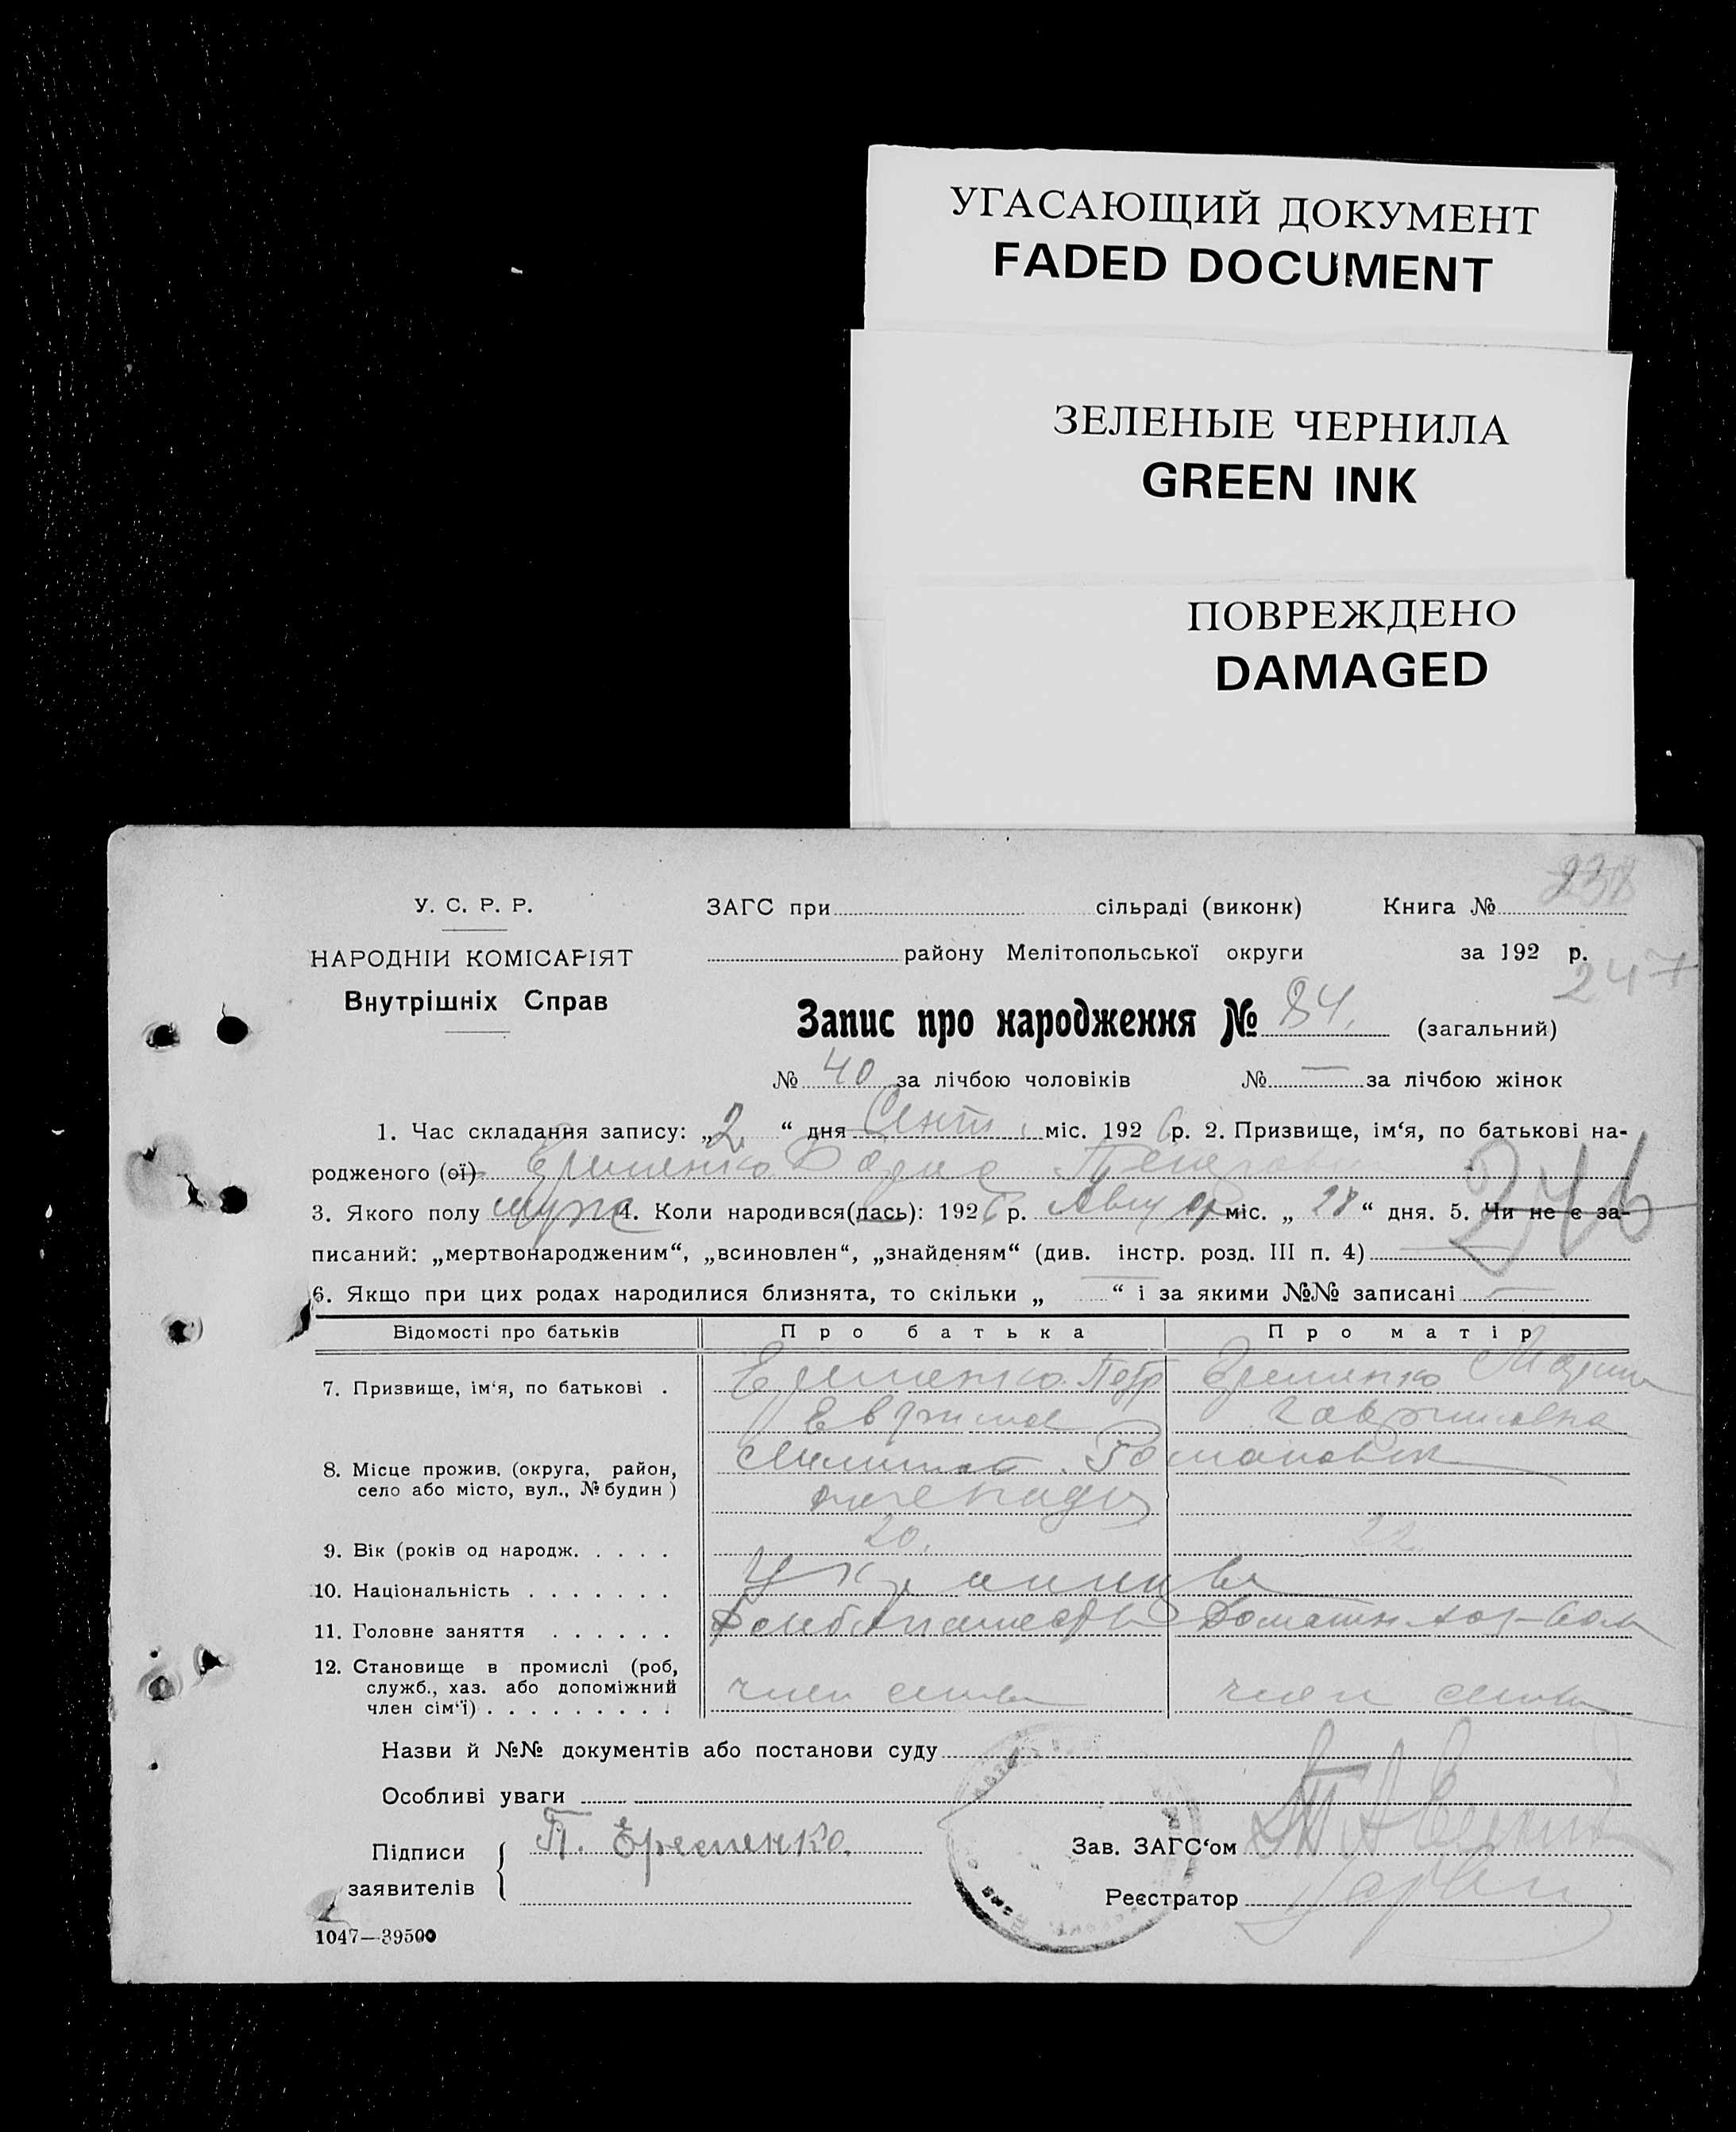 УГАСАЮЩИЙ ДОКУМЕНТ
FADED DOCUMENT
ЗЕЛЕНЫЕ ЧЕРНИЛА
GREEN INK
ПОВРЕЖДЕНО
DAMAGED
238
У. С. Р. Р.
ЗАГС при сільраді (виконк) Книга №
НАРОДНІИ КОМІСАРІЯТ
району Мелітопольської округи за 192 р.
247
Внутрішніх Справ
Запис про народження № 84. (загальний)
№ 40 за лічбою чоловіків № — за лічбою жінок
1. Час складання запису: „2“ дня Сент. міс. 1926 р. 2. Призвище, ім‘я, по батькові на-
родженого (ої) Еременко
246
3. Якого полу муж 4. Коли народився(лась): 1926 р. Август міс. „ 28 “ дня. 5. Чи не є за-
писаний: „мертвонародженим“, „всиновлен“, „знайденям“ (див. інстр. розд. III п. 4)
6. Якщо при цих родах народилися близнята, то скільки „ — “ і за якими №№ записані —
Відомості про батьків Про батька Про матір
7. Призвище, ім‘я, по батькові . Еременко Петр Еременко Мария
Гавриловна
8. Місце прожив. (округа, район,
село або місто, вул., № будин )
9. Вік (років од народж. . . . . 20. 22.
10. Національність . . . . . . . Украинцы
11. Головне заняття . . . . . .
12. Становище в промислі (роб,
служб., хаз. або допоміжний
член сім‘ї) . . . . . . . . . член семьи член семьи
Назви й №№ документів або постанови суду
Особливі уваги
Підписи П. Еременко. Зав. ЗАГС‘ом
заявителів
Реєстратор
1047—39500